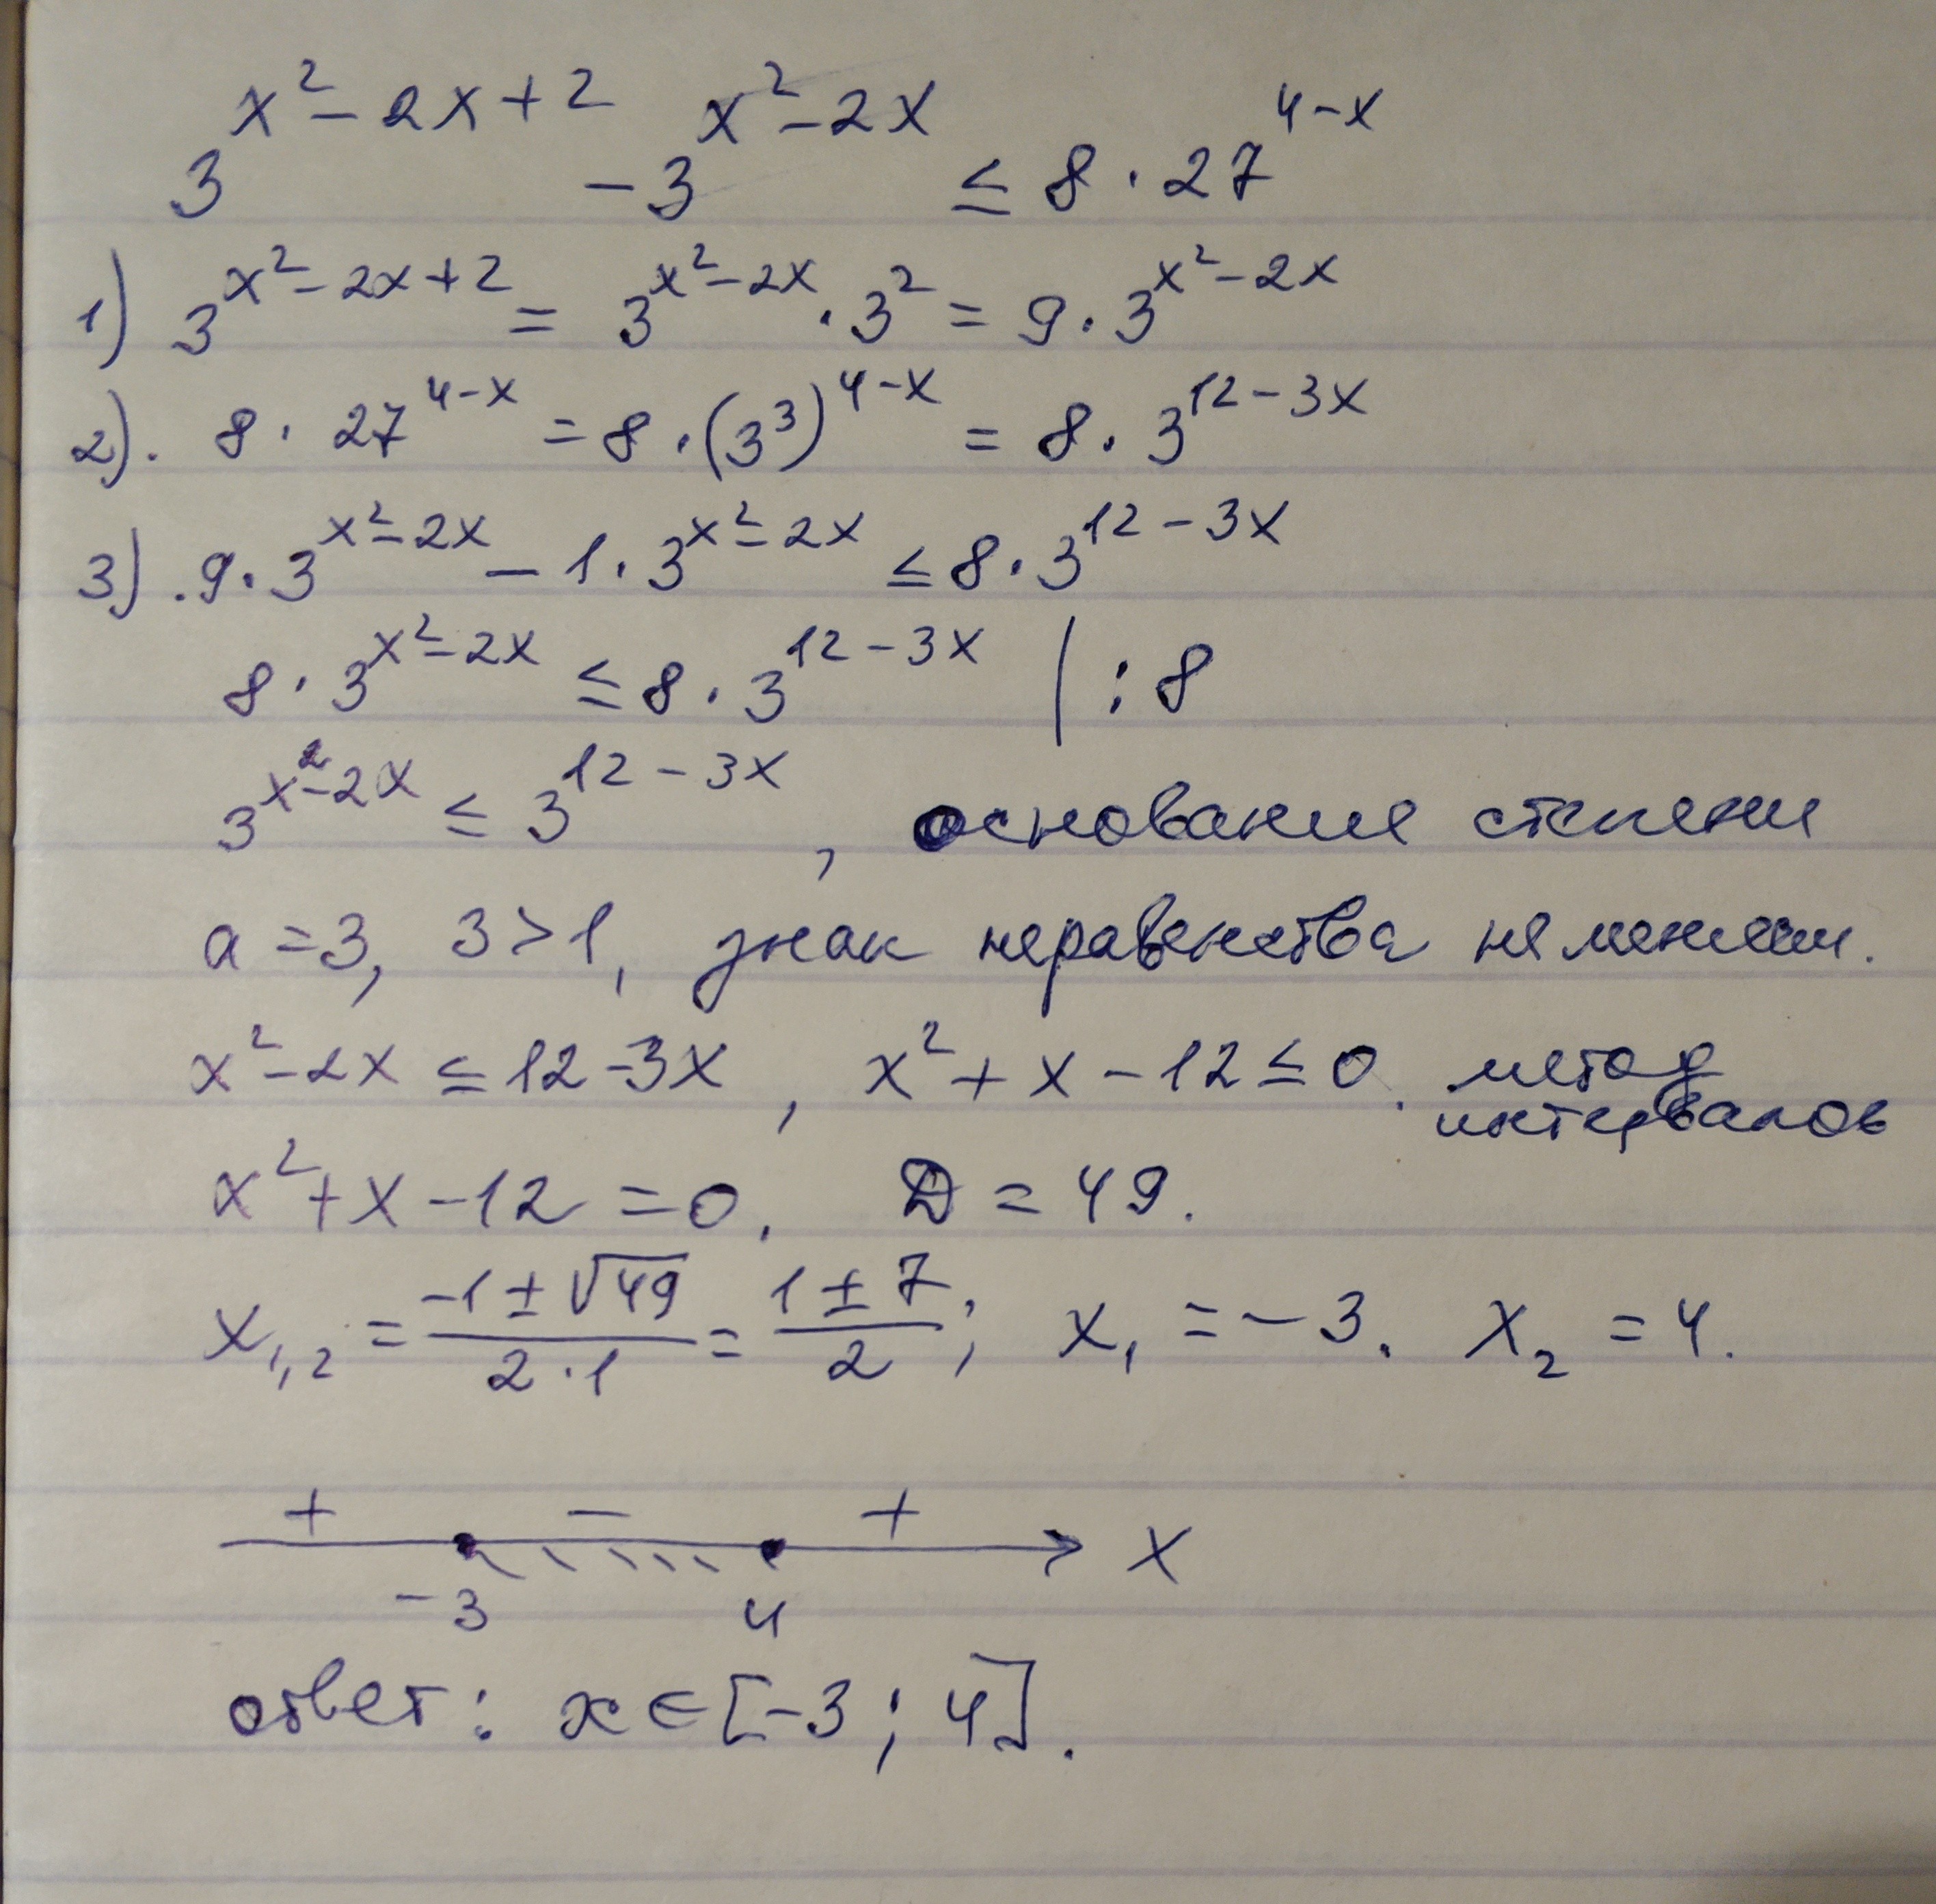 3^(x²-2x+2) - 3^(x²-2x) ≤ 8 · 27^(4-x)
1) 3^(x²-2x+2) = 3^(x²-2x) · 3² = 9 · 3^(x²-2x)
2). 8 · 27^(4-x) = 8 · (3³)^(4-x) = 8 · 3^(12-3x)
3) . 9 · 3^(x²-2x) - 1 · 3^(x²-2x) ≤ 8 · 3^(12-3x)
8 · 3^(x²-2x) ≤ 8 · 3^(12-3x) | : 8
3^(x²-2x) ≤ 3^(12-3x) , основание степени
a = 3, 3 > 1, знак неравенства не меняем.
x² - 2x ≤ 12 - 3x , x² + x - 12 ≤ 0. метод
интервалов
x² + x - 12 = 0. D = 49.
x₁,₂ = (-1 ± √49)/(2·1) = (1 ± 7)/2 ; x₁ = -3. x₂ = 4.
+ - + x
-3 4
ответ: x ∈ [-3; 4].